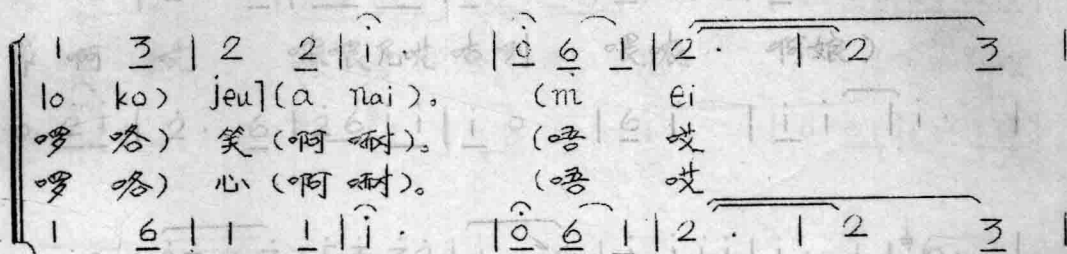 1 3 | 2 2 | i · | 0 6 1 | 2 · | 2 3 |
lo ko) jeu1(a nai)。 (m ei
啰 咯) 笑(啊 嗬)。 (唔 哎
啰 咯) 心(啊 嗬)。 (唔 哎
1 6 | 1 1 | i · | 0 6 1 | 2 · | 2 3 |